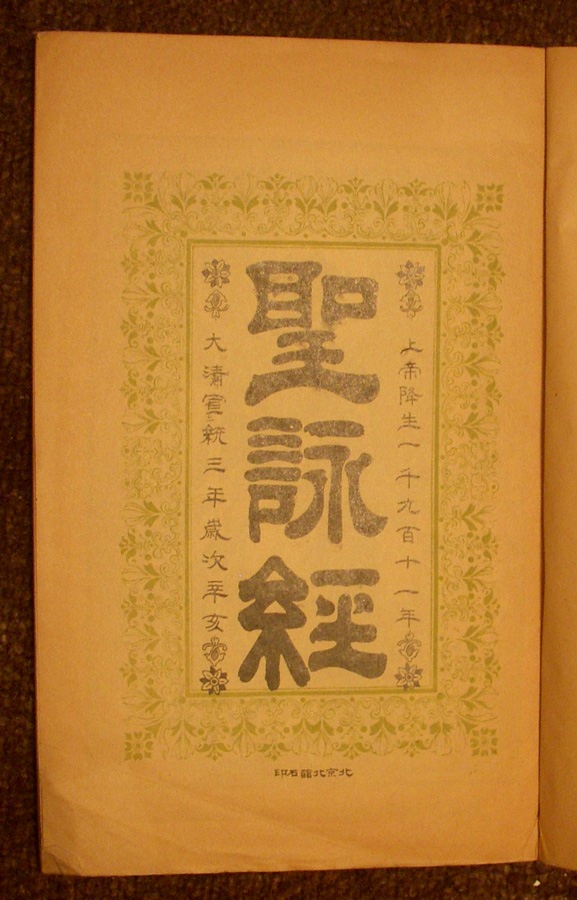 上帝降生一千九百十一年
聖詠經
大清宣統三年歲次辛亥
北京北館石印